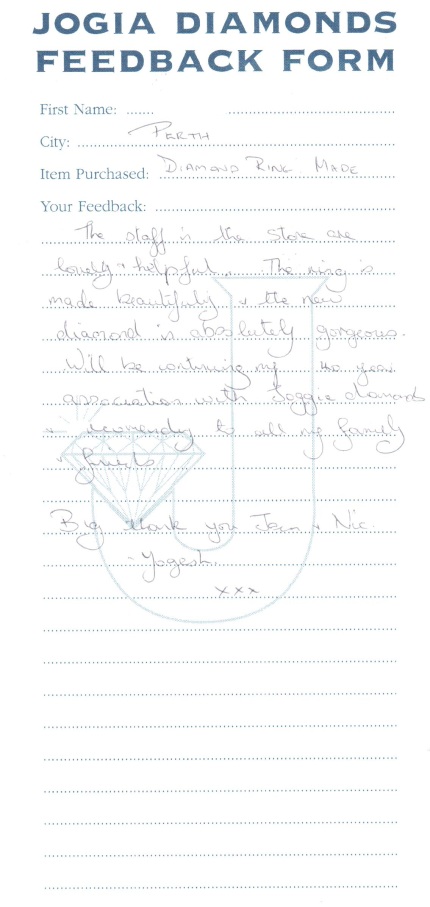 JOGIA DIAMONDS
FEEDBACK FORM
First Name:
City: PERTH
Item Purchased: DIAMOND RING MADE
Your Feedback:
The staff in the store are
lovely + helpful. The ring is
made beautifully + the new
diamond is absolutely gorgeous.
Will be continuing my 40 year
association with Joggie diamonds
+ to all my family
+ friends
Big thank you Jean + Nic.
- Yogesh.
xxx